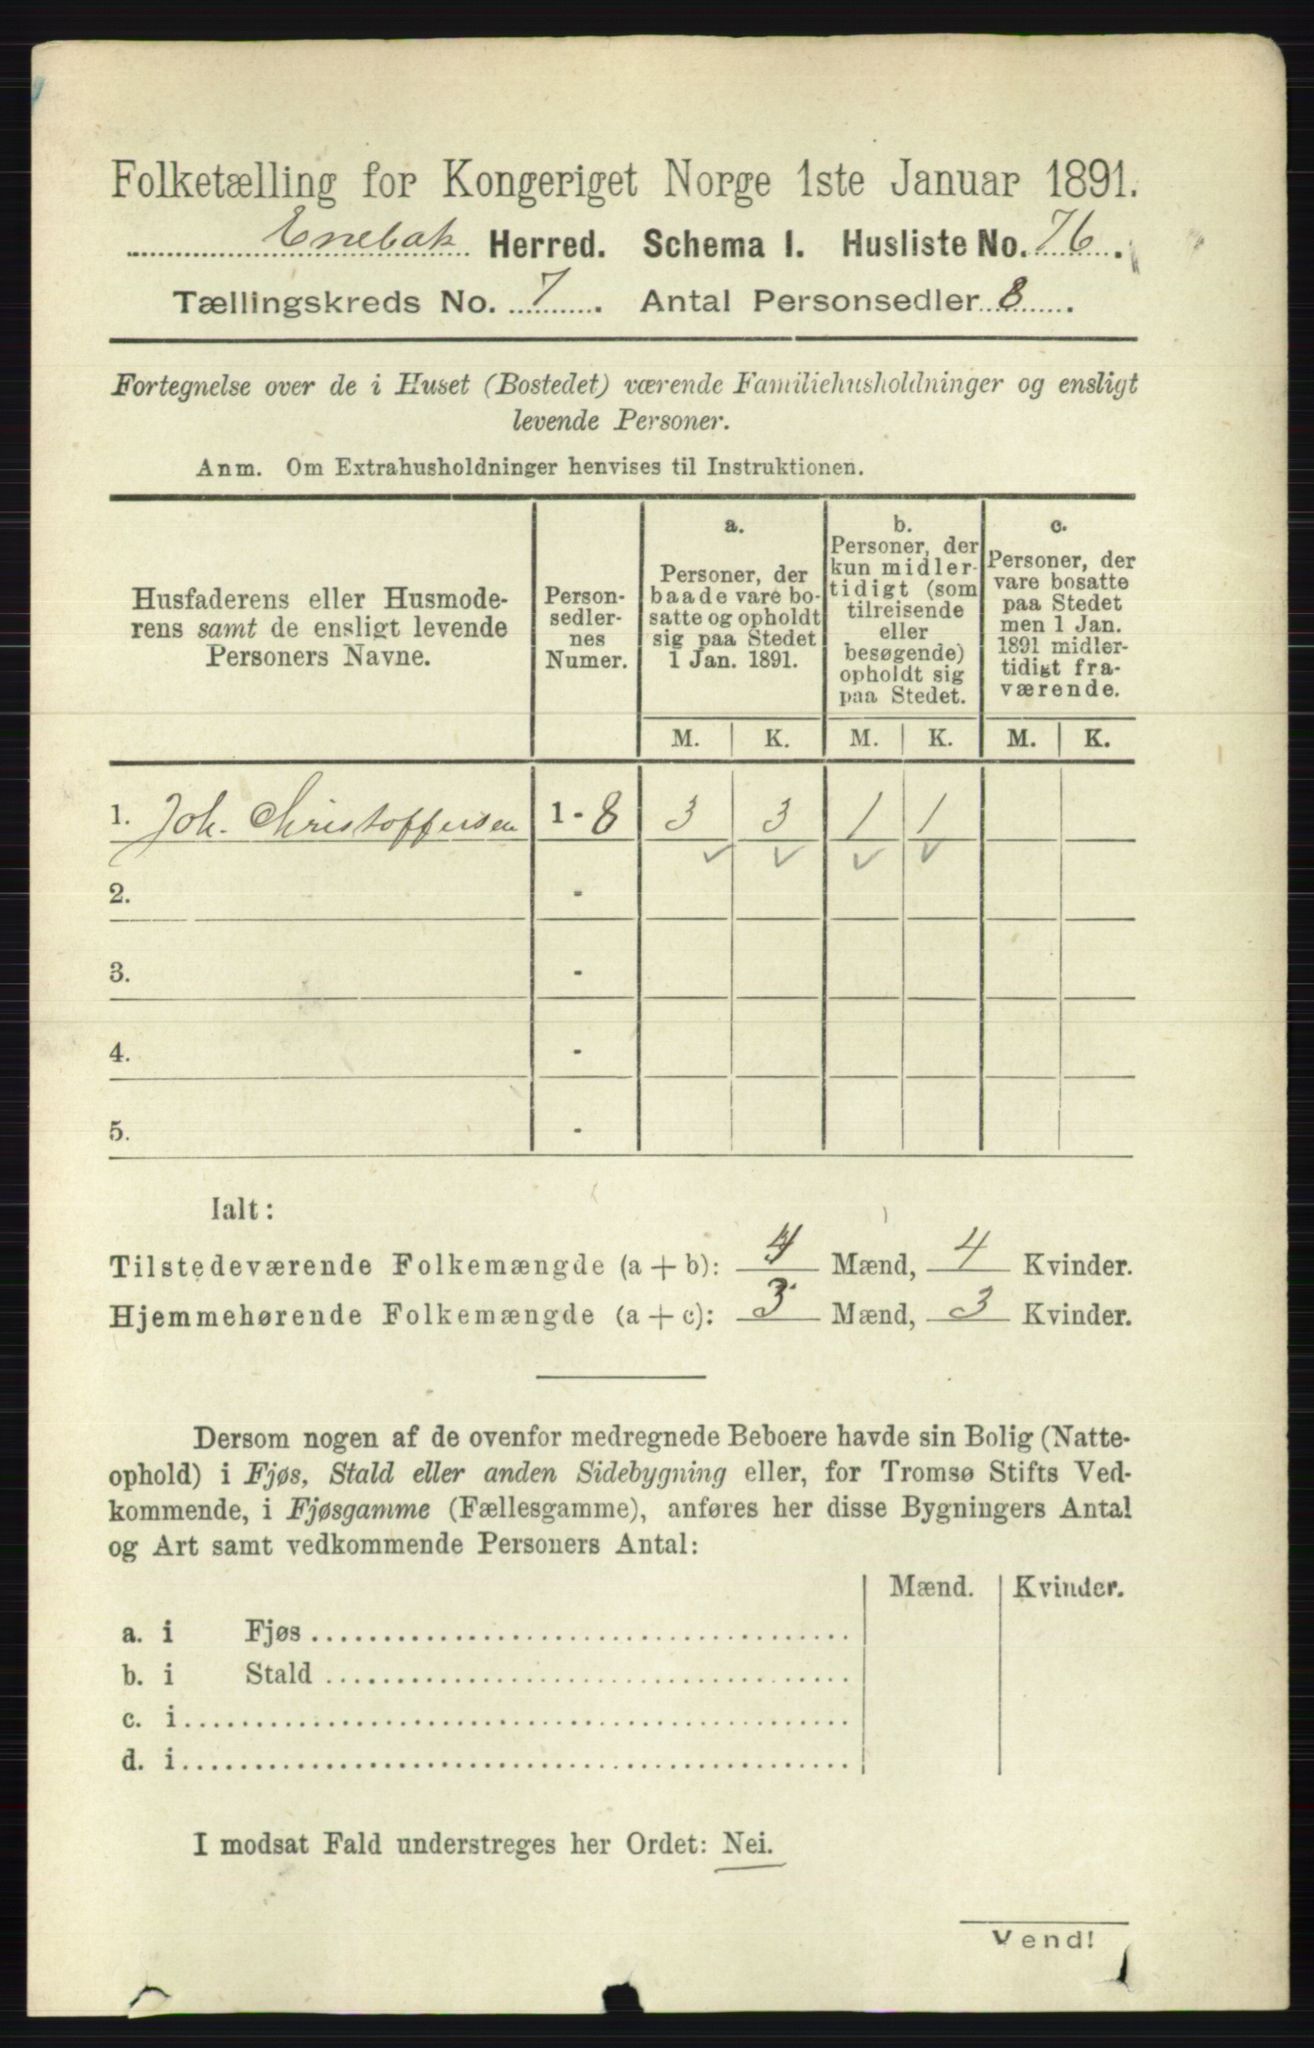 Folketælling for Kongeriget Norge 1ste Januar 1891.
Enebak Herred. Schema I. Husliste No. 76.
Tællingskreds No. 7. Antal Personsedler 8.
Fortegnelse over de i Huset (Bostedet) værende Familiehusholdninger og ensligt
levende Personer.
Anm. Om Extrahusholdninger henvises til Instruktionen.
Husfaderens eller Husmode-
rens samt de ensligt levende
Personers Navne.
Person-
sedler-
nes
Numer.
a.
Personer, der
baade vare bo-
satte og opholdt
sig paa Stedet
1 Jan. 1891.
b.
Personer, der
kun midler-
tidigt (som
tilreisende
eller
besøgende)
opholdt sig
paa Stedet.
c.
Personer, der
vare bosatte
paa Stedet
men 1 Jan.
1891 midler-
tidigt fra-
værende.
M. K. M. K. M. K.
1. Joh. Christoffersen 1 - 8 3 3 1 1
2. -
3. -
4. -
5. -
Ialt:
Tilstedeværende Folkemængde (a + b): 4 Mænd, 4 Kvinder.
Hjemmehørende Folkemængde (a + c): 3 Mænd, 3 Kvinder.
Dersom nogen af de ovenfor medregnede Beboere havde sin Bolig (Natte-
ophold) i Fjøs, Stald eller anden Sidebygning eller, for Tromsø Stifts Ved-
kommende, i Fjøsgamme (Fællesgamme), anføres her disse Bygningers Antal
og Art samt vedkommende Personers Antal:
Mænd. Kvinder.
a. i Fjøs
b. i Stald
c. i
d. i
I modsat Fald understreges her Ordet: Nei.
Vend!